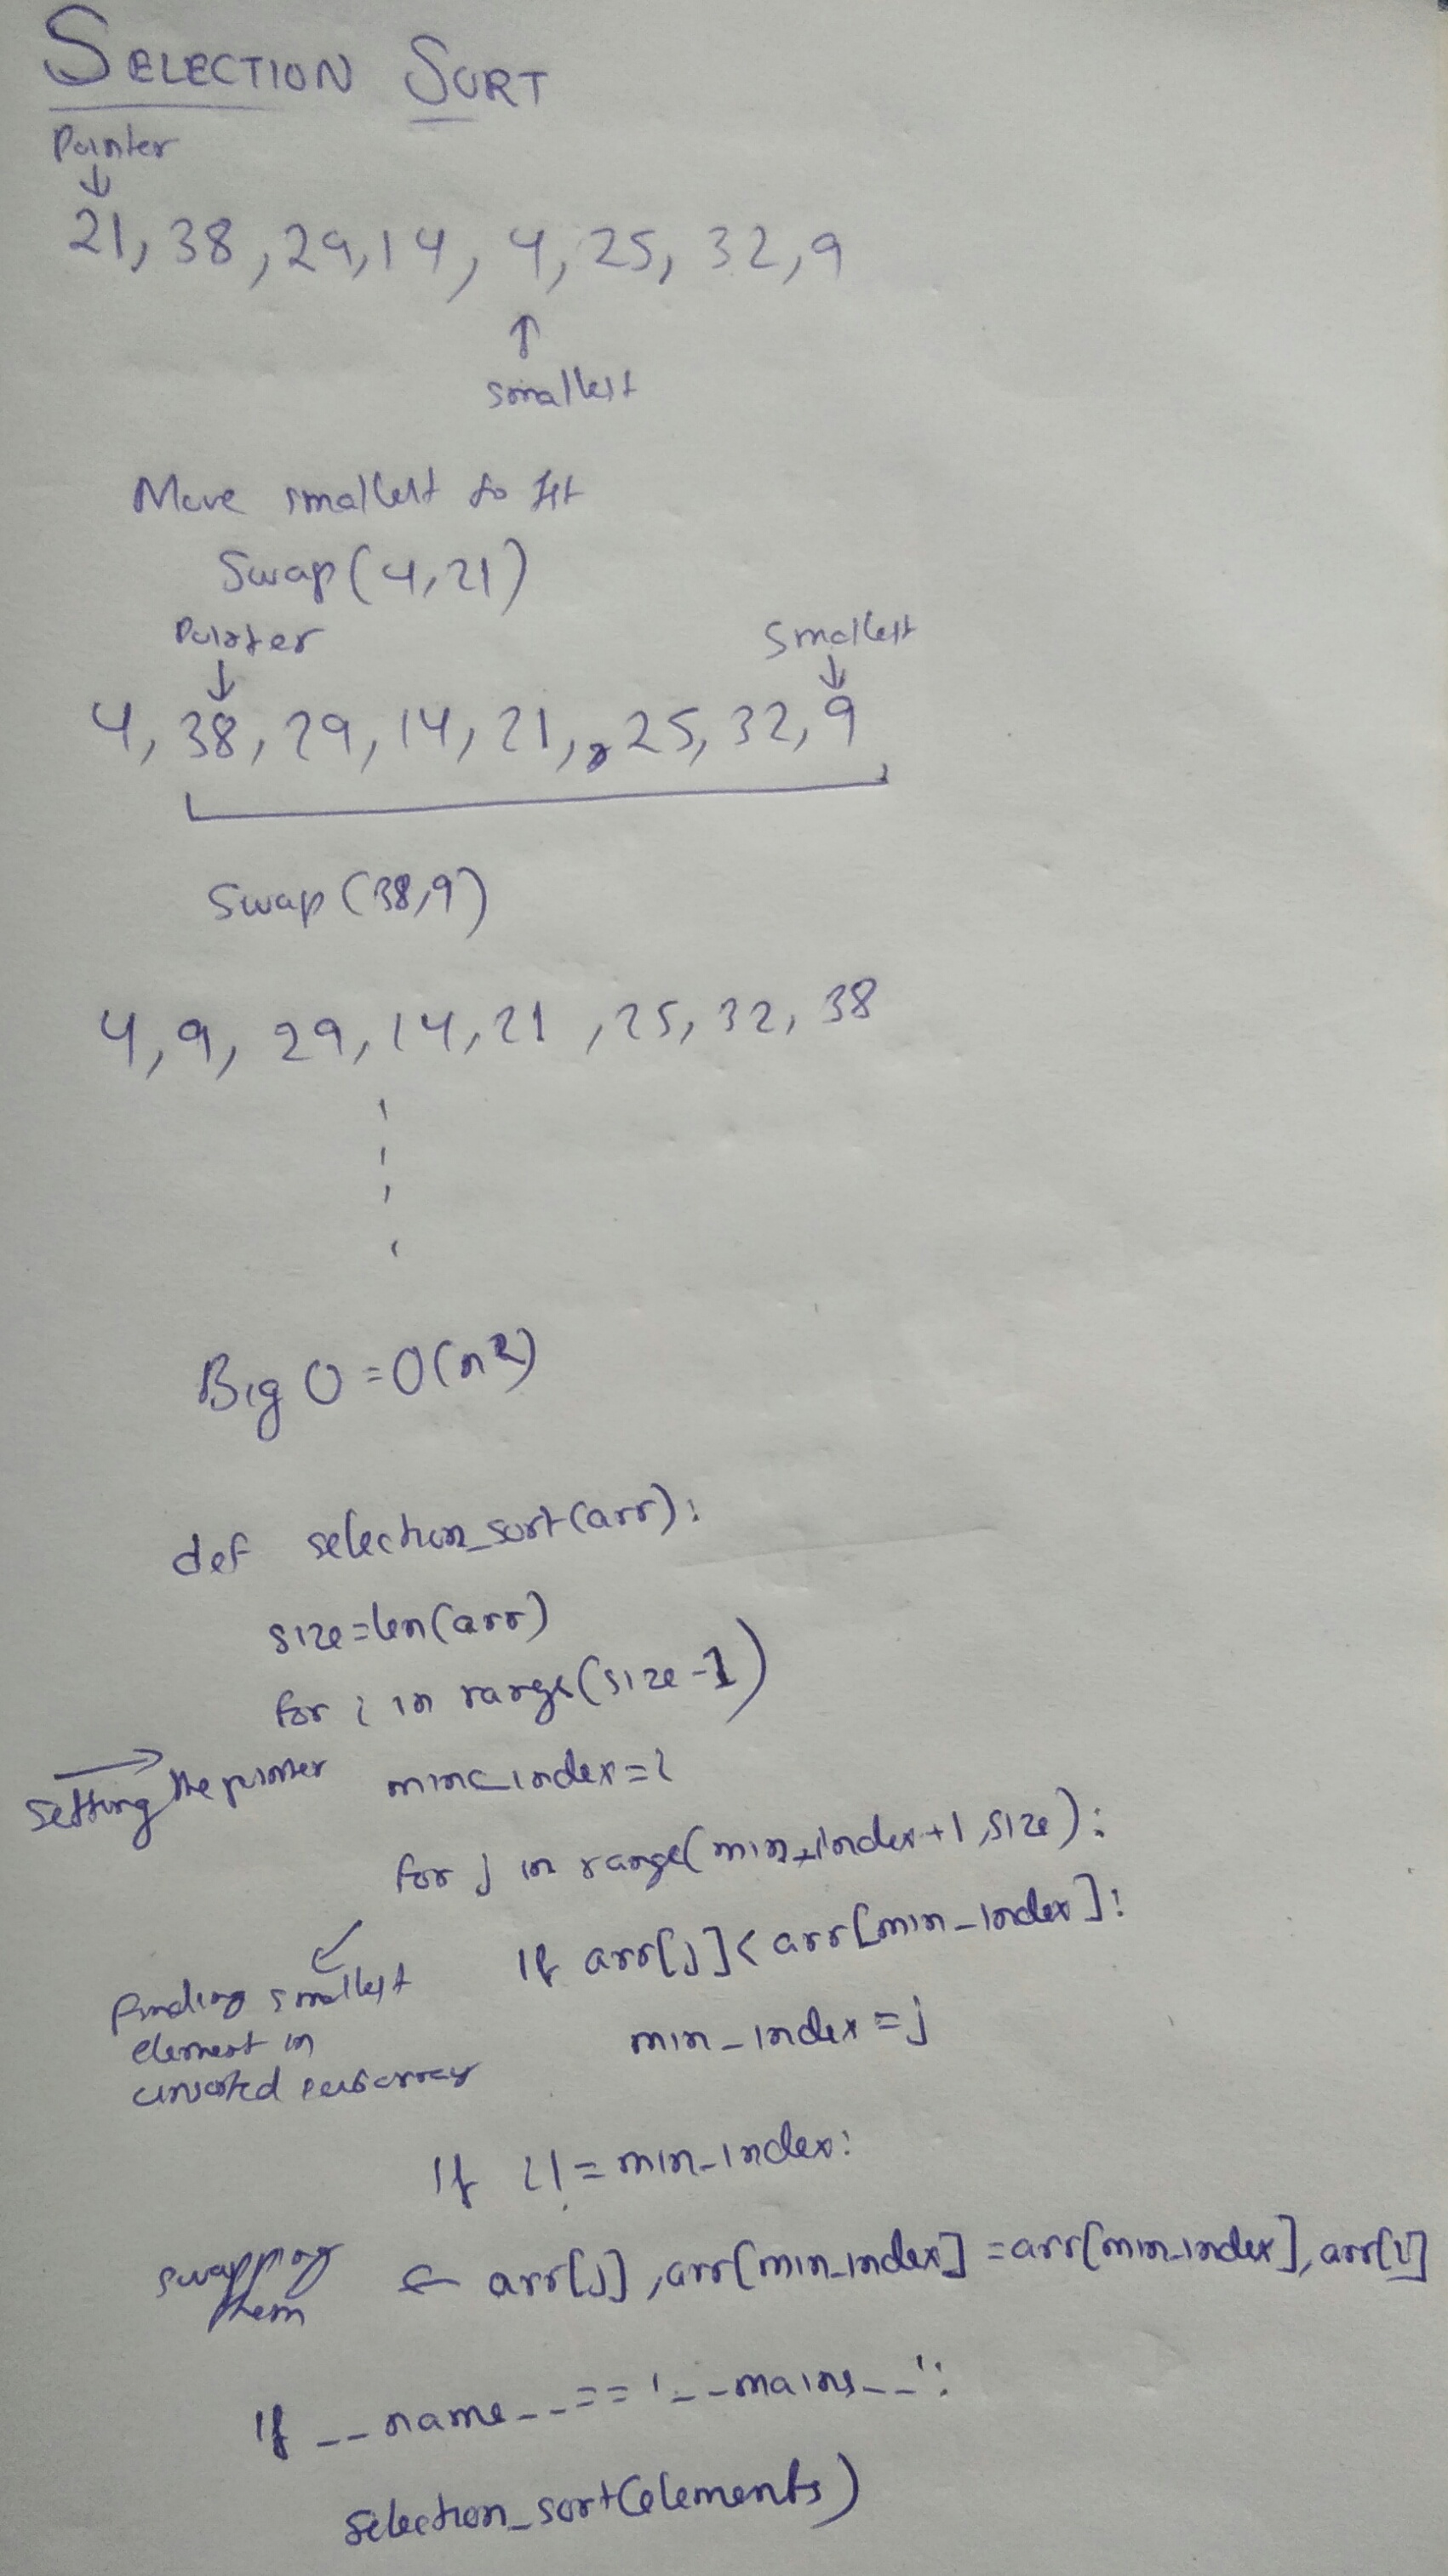 SELECTION SORT
Pointer
21, 38, 29, 14, 4, 25, 32, 9
smallest
Move smallest to 1st
Swap(4,21)
Pointer Smallest
4, 38, 29, 14, 21, , 25, 32, 9
Swap (38,9)
4, 9, 29, 14, 21, 25, 32, 38
Big O = O(n2)
def selection_sort(arr):
size=len(arr)
for i in range(size-1)
setting the pointer min_index=i
for j in range(min_index+1,size):
if arr[j]<arr[min_index]:
finding smallest
element in
unsorted subarray
min_index=j
if i!=min_index:
swapping
them
arr[j],arr[min_index]=arr[min_index],arr[i]
if __name__=='__main__':
selection_sort(elements)